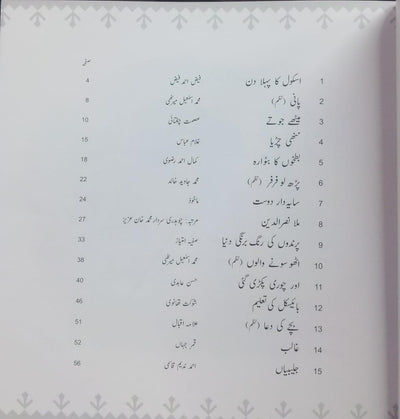 صفحہ
1 اسکول کا پہلا دن فیض احمد فیض 4
2 پانی (نظم) محمد اسمٰعیل میرٹھی 8
3 میٹھے جوتے عصمت چغتائی 10
4 ننھی چڑیا غلام عباس 15
5 بطخوں کا بٹوارہ کمال احمد رضوی 18
6 پڑھ لو فرفر (نظم) محمد جاوید خالد 22
7 سایہ دار دوست ماخوذ 24
8 ملا نصرالدین مرتبہ: چوہدری سردار محمد خان عزیز 27
9 پرندوں کی رنگ برنگی دنیا صفیہ امتیاز 33
10 اٹھو سونے والوں (نظم) محمد اسمٰعیل میرٹھی 38
11 اور چوری پکڑی گئی حسن عابدی 40
12 بائیسکل کی تعلیم شوکت تھانوی 45
13 بچے کی دعا (نظم) علامہ اقبال 51
14 غالب قمر جہاں 52
15 جلیبیاں احمد ندیم قاسمی 56